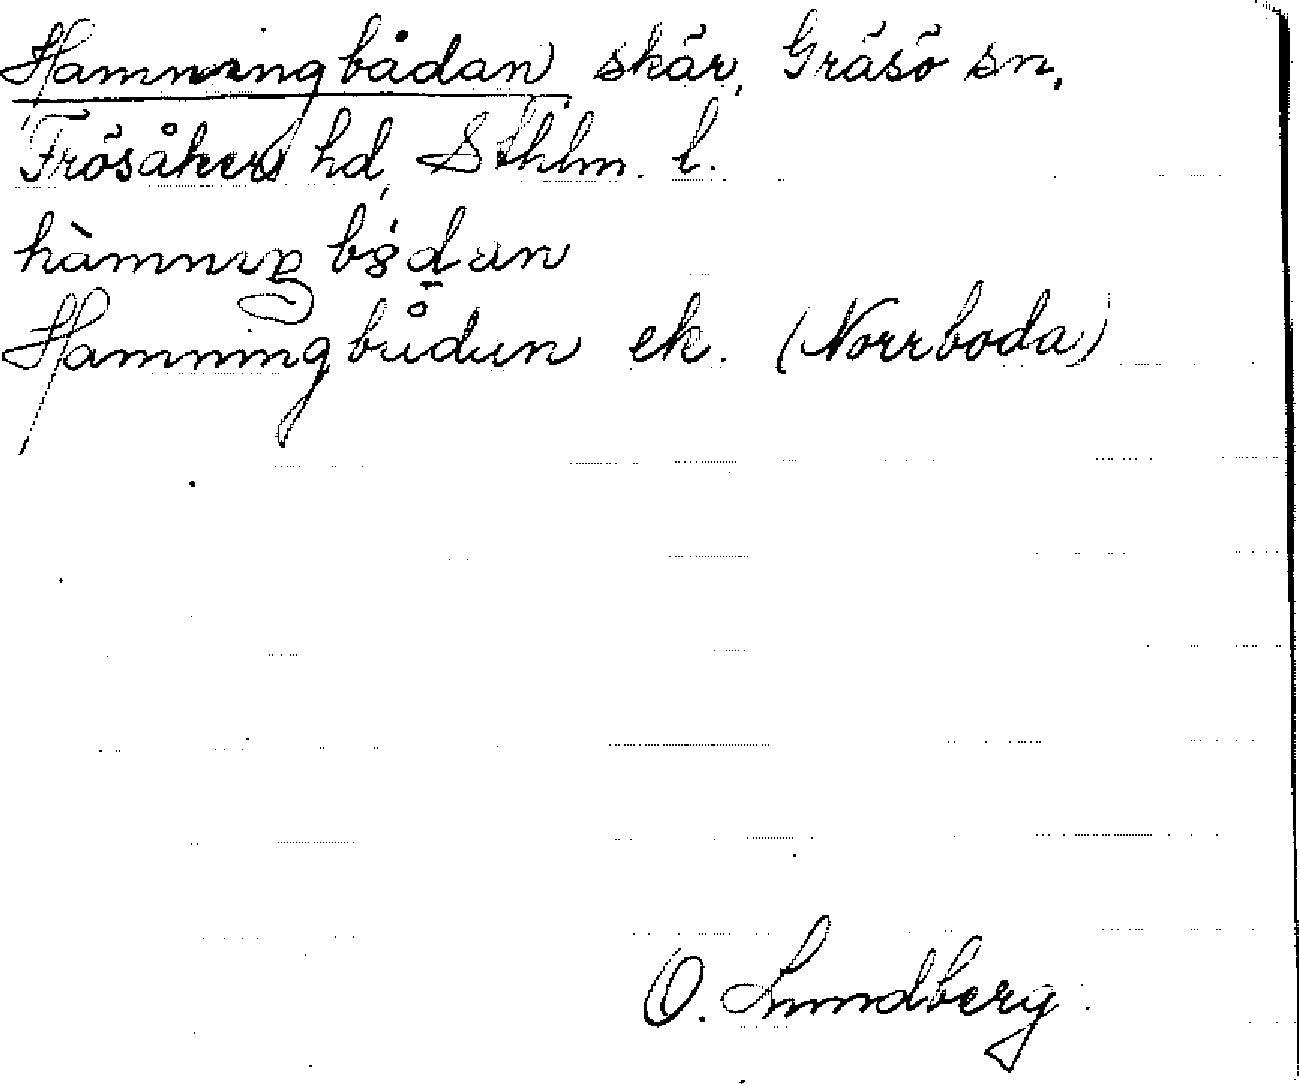 Hamningbådan skär, Gräsö sn,
Frösåkers hd, Sthlm. l.
hàmnıŋ bɷ́dan
Hamningbådan ek. (Norrboda)
O. Lundberg.